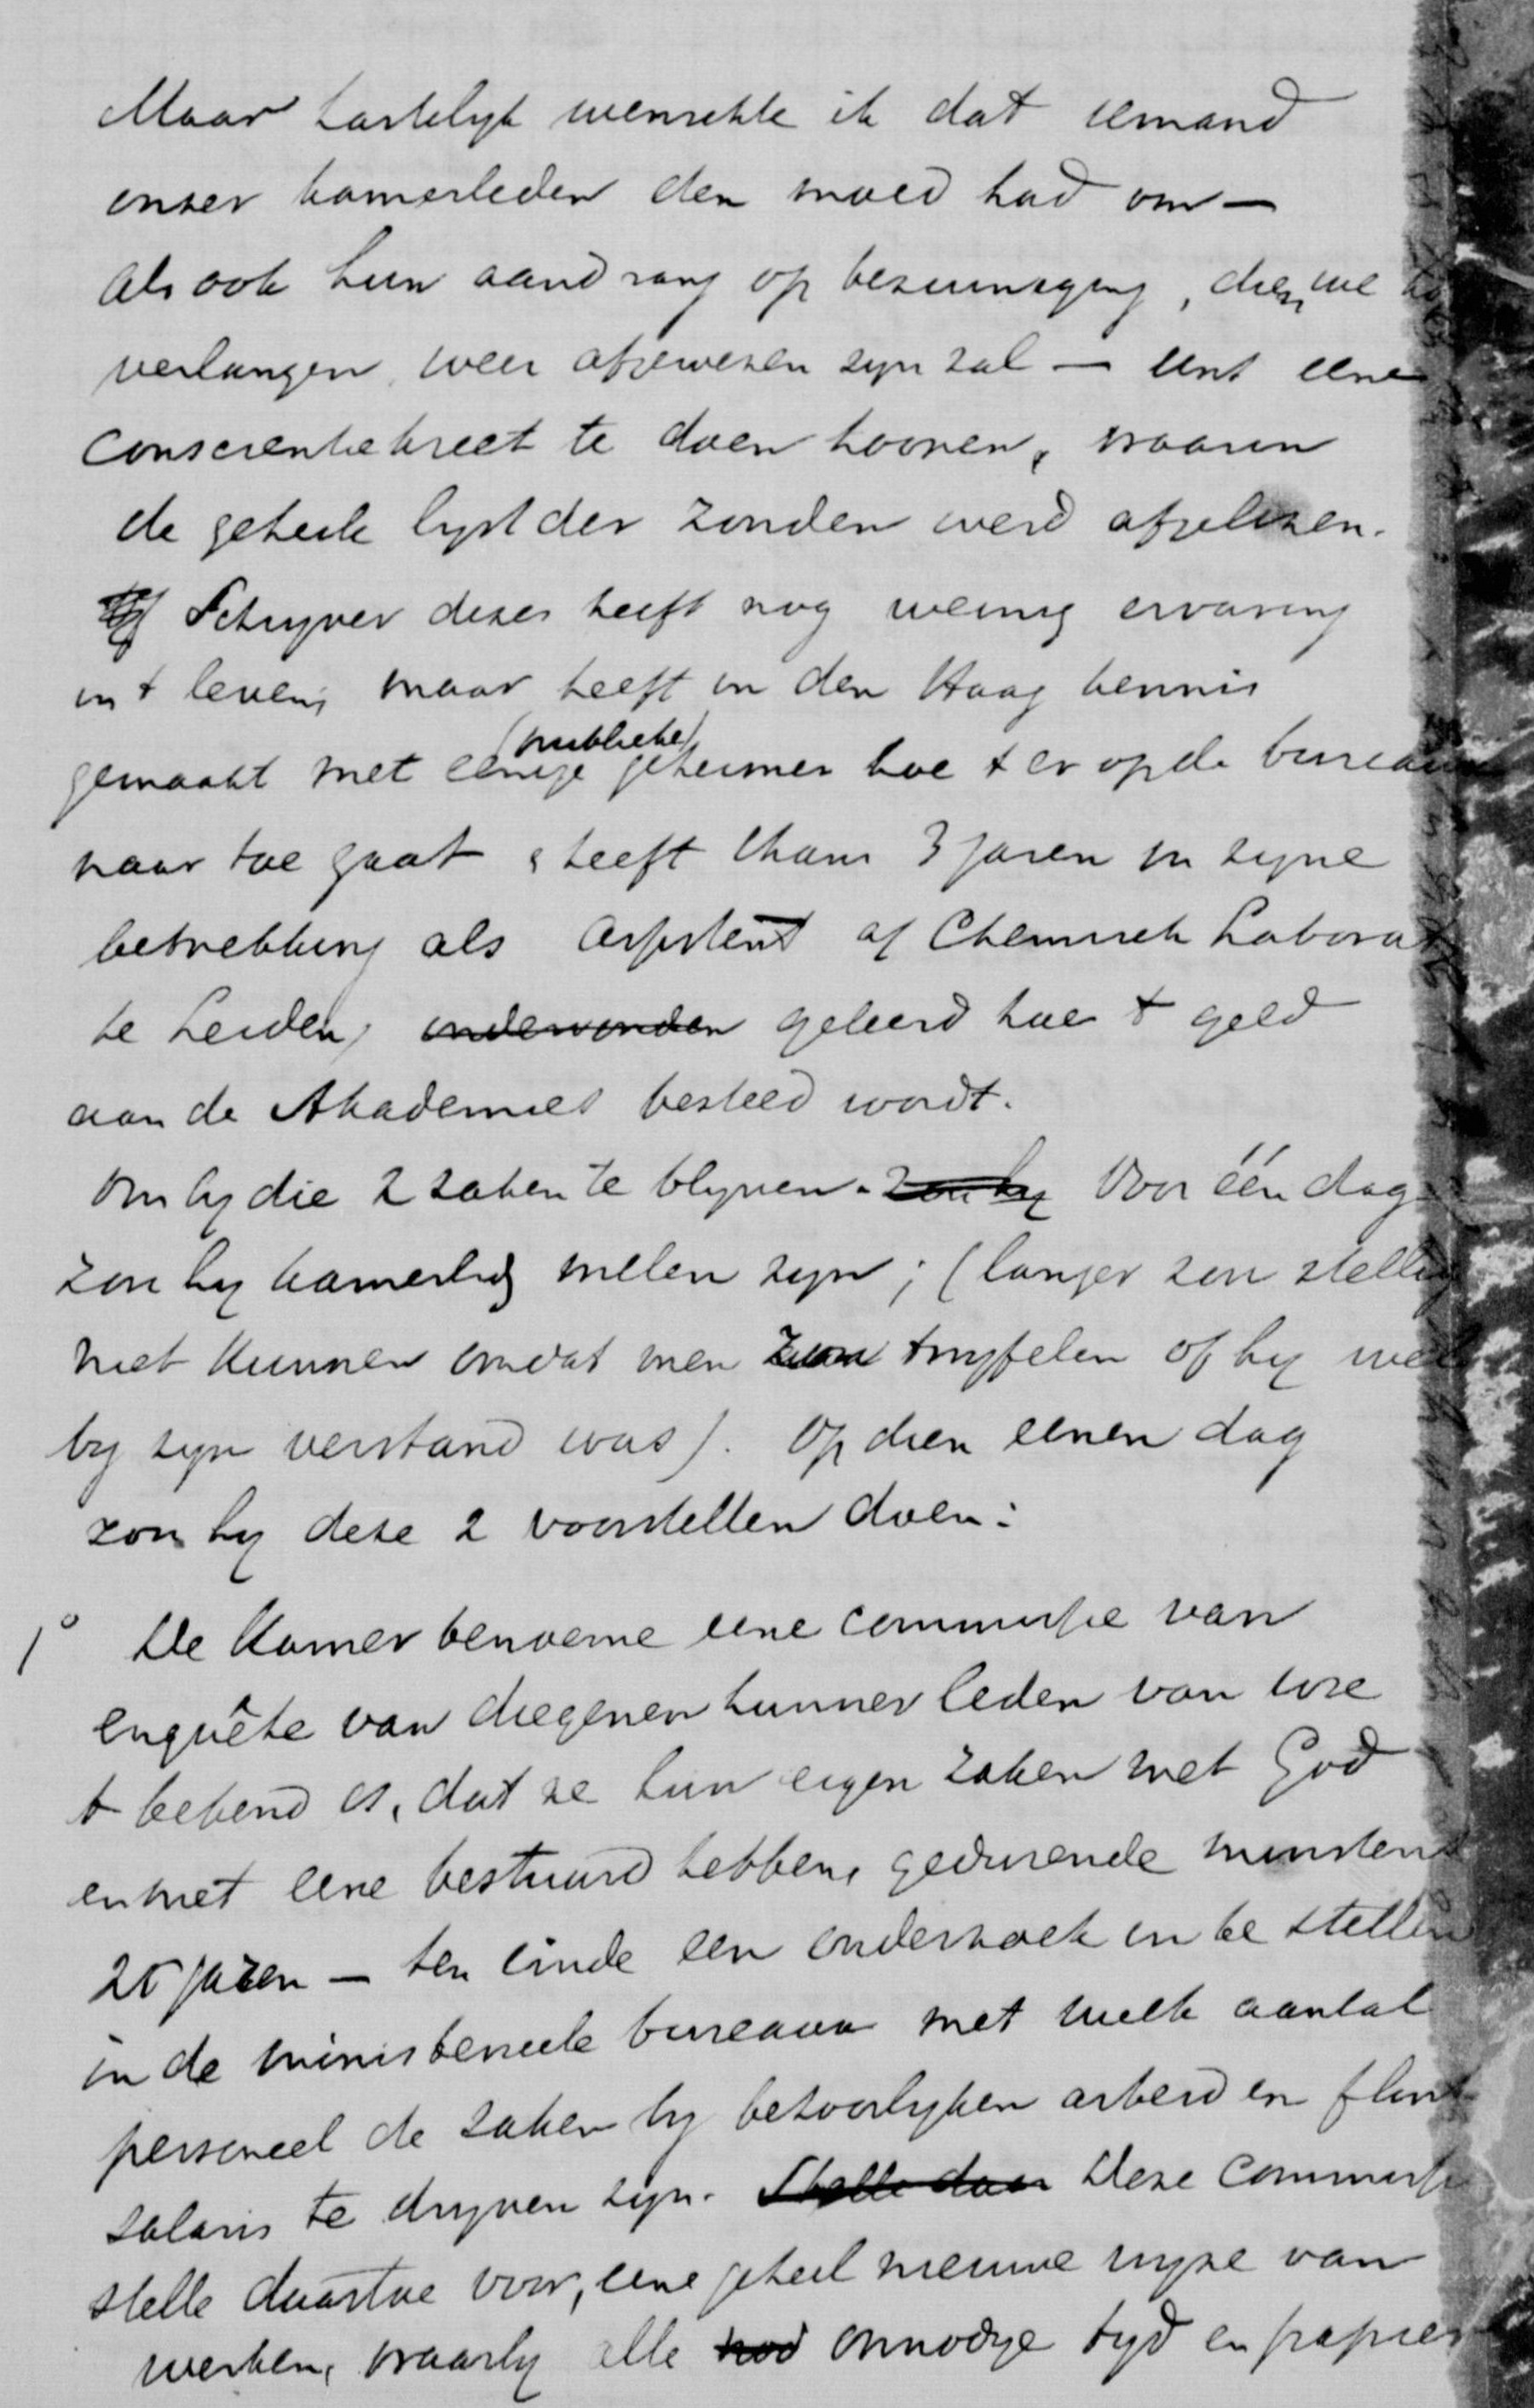 Maar hartelyk wenschte ik dat iemand
onzer kamerleden den moed had om —
als ook hun aandrang op bezuiniging, dien we
verlangen, weer afgewezen zyn zal — eens eene
conscientiekreet te doen hooren, waarin
de geheele lyst der zonden werd afgelezen.
Schryver dezes heeft nog weinig ervaring
in t leven, maar heeft in den Haag kennis
gemaakt met eenige (publieke) geheimen hoe t er op de bureaux
naar toe gaat & heeft thans 3 jaren in zyne
betrekking als assistent a/ Chemisch Laborat
te Leiden, ondervonden geleerd hoe t geld
aan de Akademies besteed wordt.
Om by die 2 zaken te blyven. Zou hy Voor één dag
zou hy kamerlid willen zyn; (langer zou stellig
niet kunnen omdat men zou twyfelen of hy wel
by zyn verstand was). Op dien eenen dag
zou hy deze 2 voorstellen doen:
1° De Kamer benoeme eene commissie van
enquête van diegenen hunner leden van wie
t bekend is, dat ze hun eigen zaken met God
en met eere bestuurd hebben, gedurende minstens
25 jaren — ten einde een onderzoek in te stellen
in de ministerieele bureaux met welk aantal
personeel de zaken by behoorlyken arbeid en flink
salaris te dryven zyn. Stelle daar Deze commissie
stelle daartoe voor, eene geheel nieuwe wyze van
werken, waarby alle nod onnoodige tyd en papier